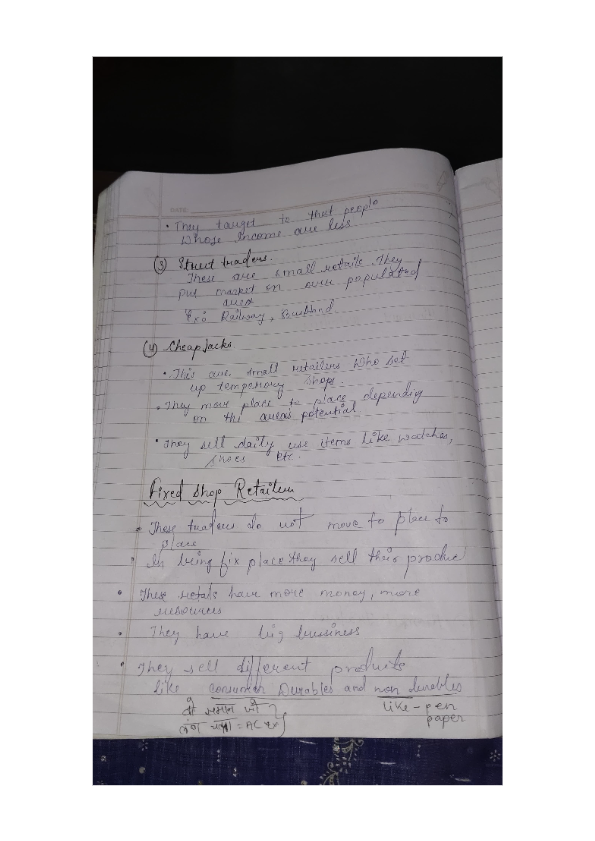 DATE
• They target to that people
Whose Income are less
(3) Street traders.
These are small retails They
put market on over populated
area
Ex: Railway,
(4) Cheap Jacks
• This are small retailers Who set
up temporary shops.
• They move place to place depending
on the area's potential
• They sell daily use items like watches,
shoes etc.
Fixed Shop Retailers
• These traders do not move to place to
place
• In being fix place they sell their produc
• These retails have more money, more
resources
• They have big bussiness
• They sell different products
like consumer Durables and non durables
समान जो like - pen
= AC paper